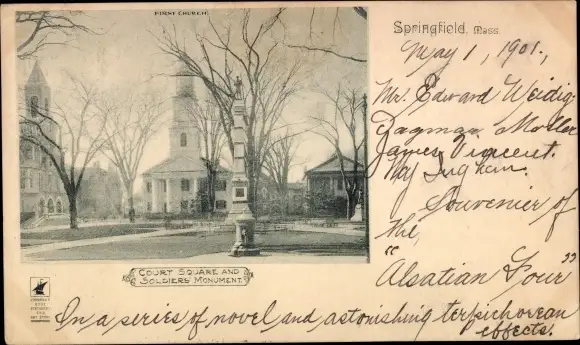 FIRST CHURCH
Springfield, Mass.
May 1, 1901.,
Mr. Edward Weidig;
Dagmar Moller
James Vincent.
Souvenier of
the,
"Alsatian Four"
COURT SQUARE AND
SOLDIERS' MONUMENT.
In a series of novel and astonishing terpsichorean
effects.